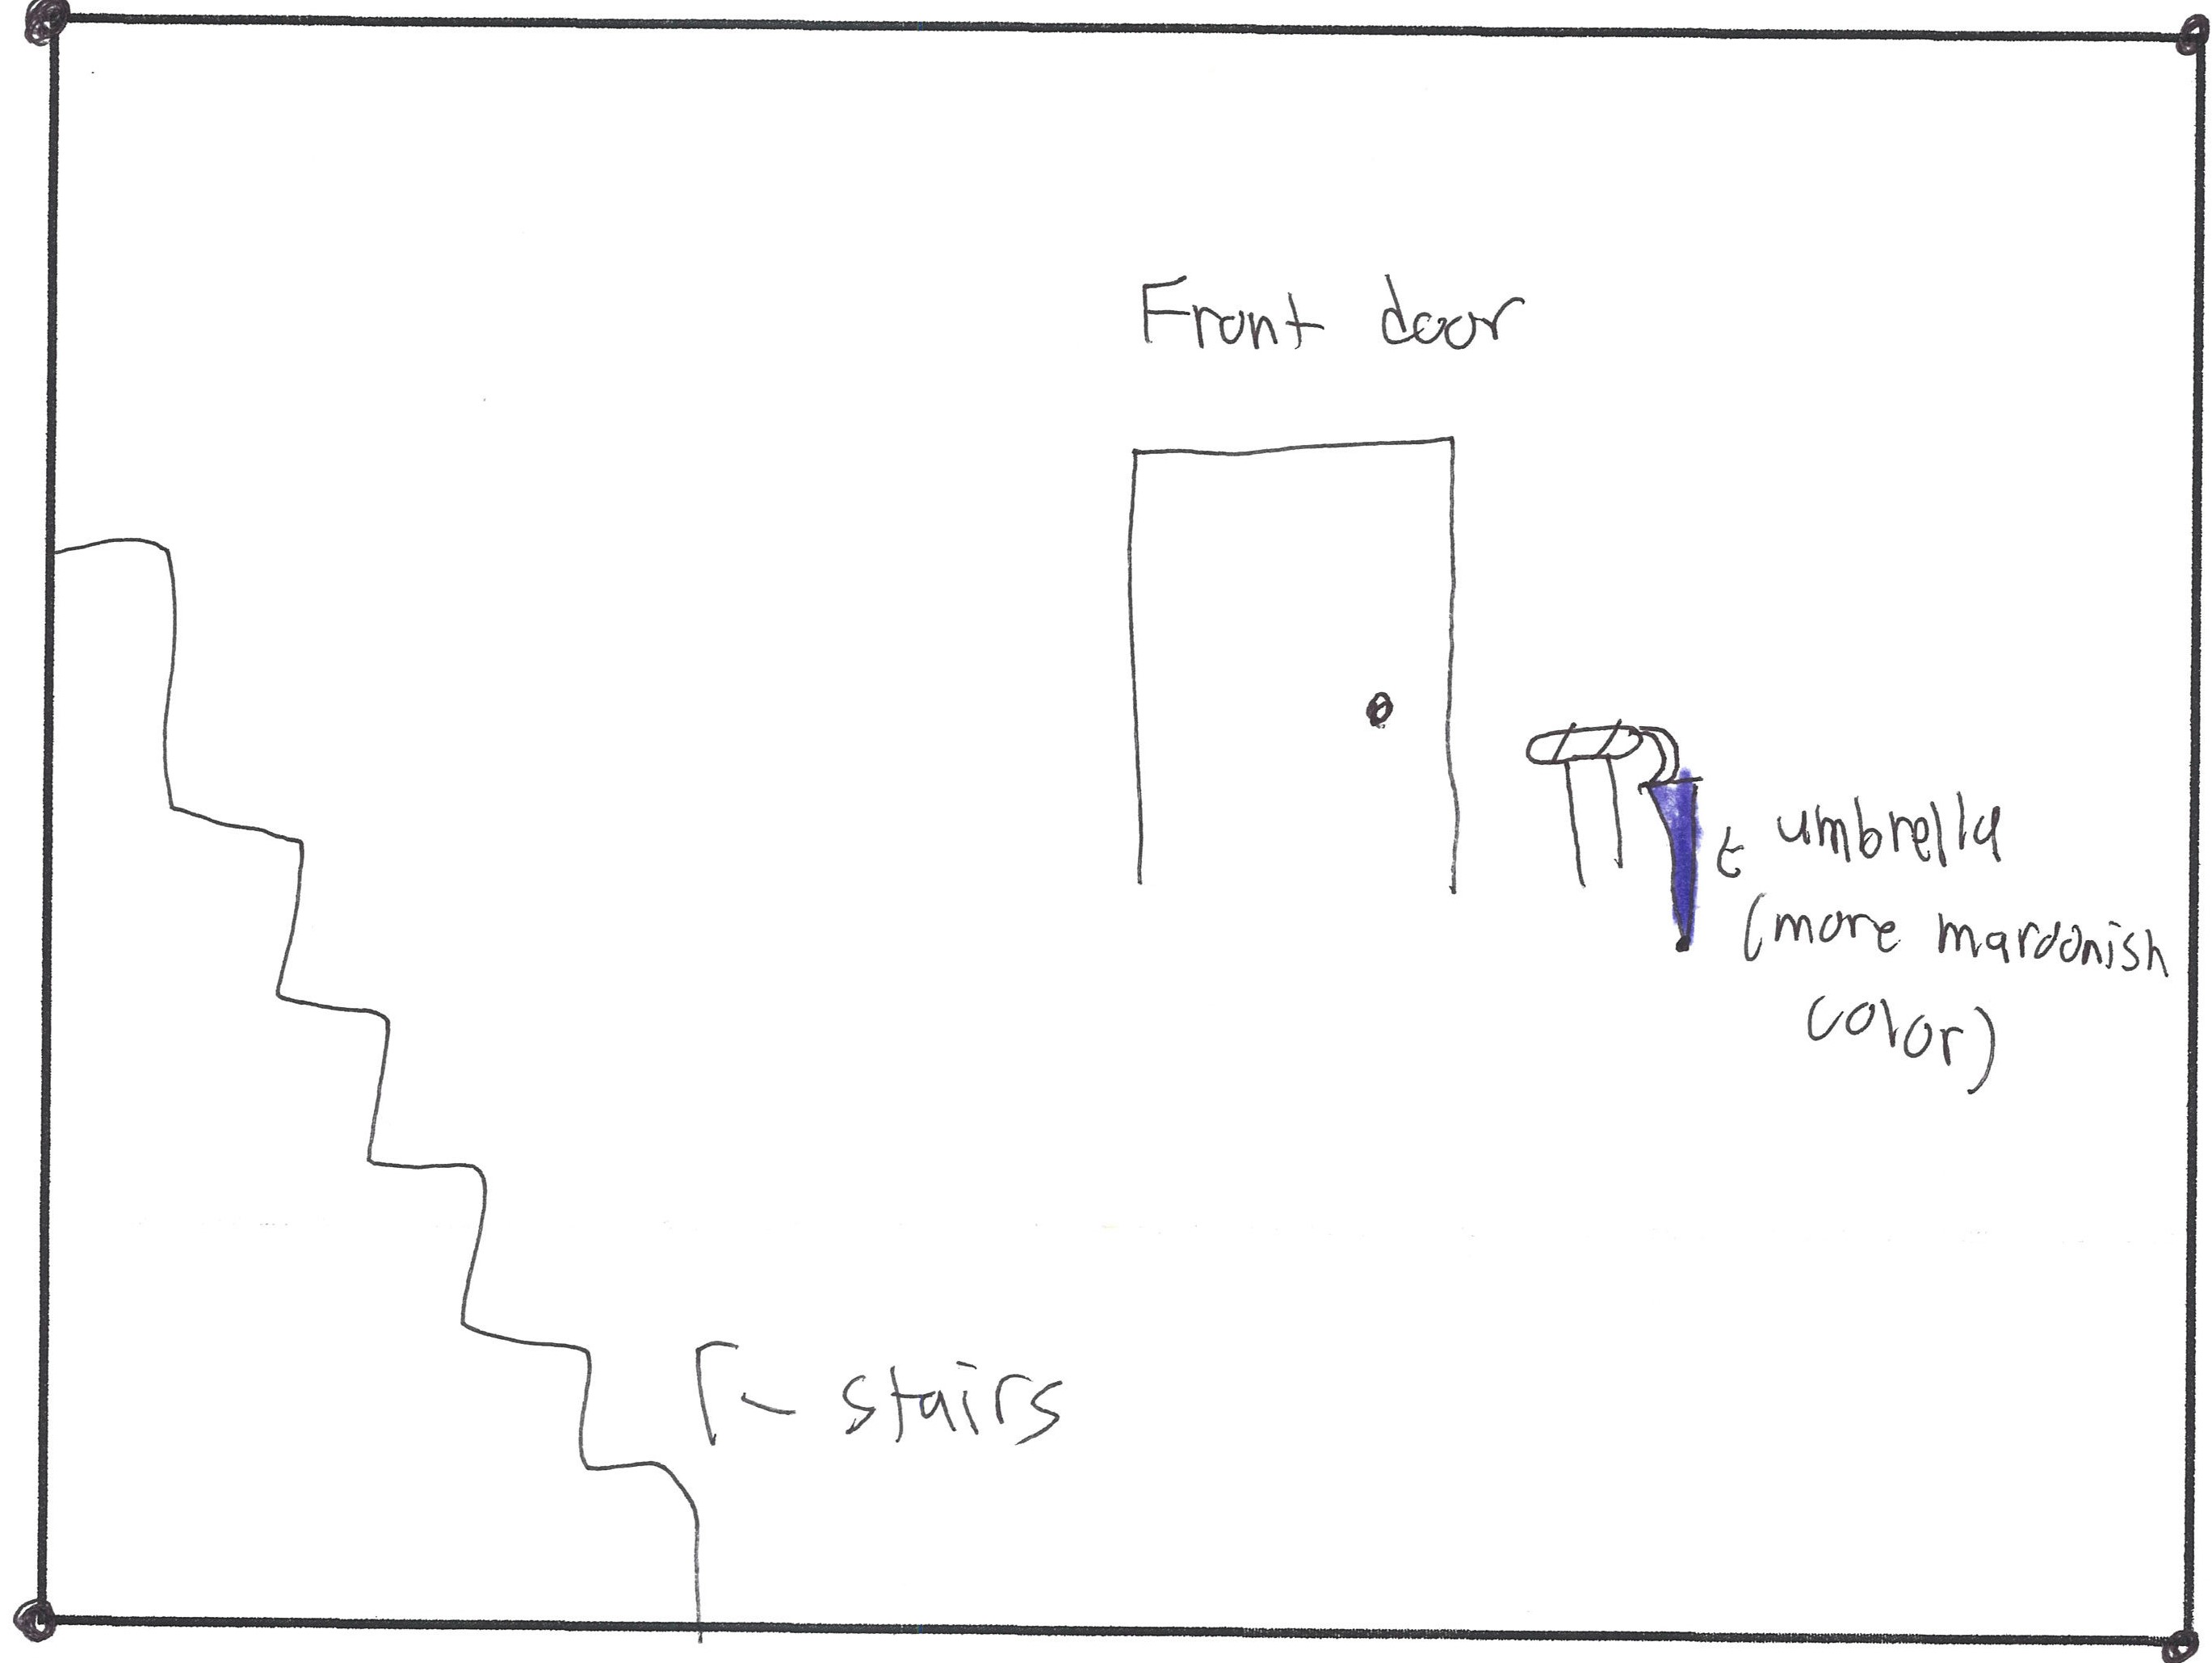 Front door
umbrella
(more maroonish
color)
stairs